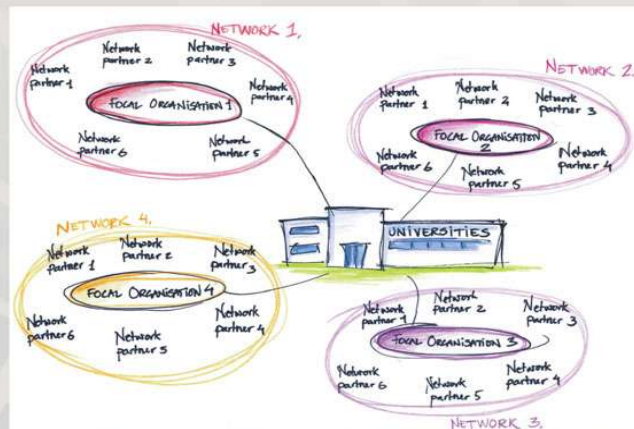 NETWORK 1.
Network
partner 2
Network
partner 3
Network
partner 1
Network
partner 4
FOCAL ORGANISATION 1
Network
partner 6
Network
partner 5
NETWORK 2.
Network
partner 1
Network
partner 2
Network
partner 3
FOCAL ORGANISATION
2
Network
partner 6
Network
partner 5
Network
partner 4
UNIVERSITIES
NETWORK 4.
Network
partner 1
Network
partner 2
Network
partner 3
FOCAL ORGANISATION 4
Network
partner 6
Network
partner 5
Network
partner 4
Network
partner 1
Network
partner 2
Network
partner 3
FOCAL ORGANISATION 3
Network
partner 6
Network
partner 5
Network
partner 4
NETWORK 3.